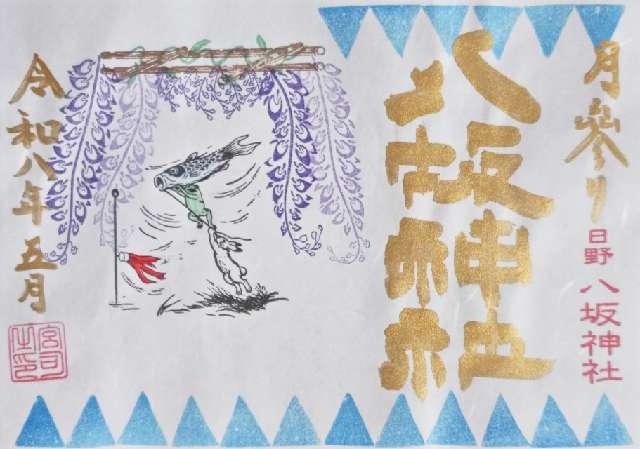 月參り
日野 八坂神社
八坂神社
令和八年五月
宮司之印